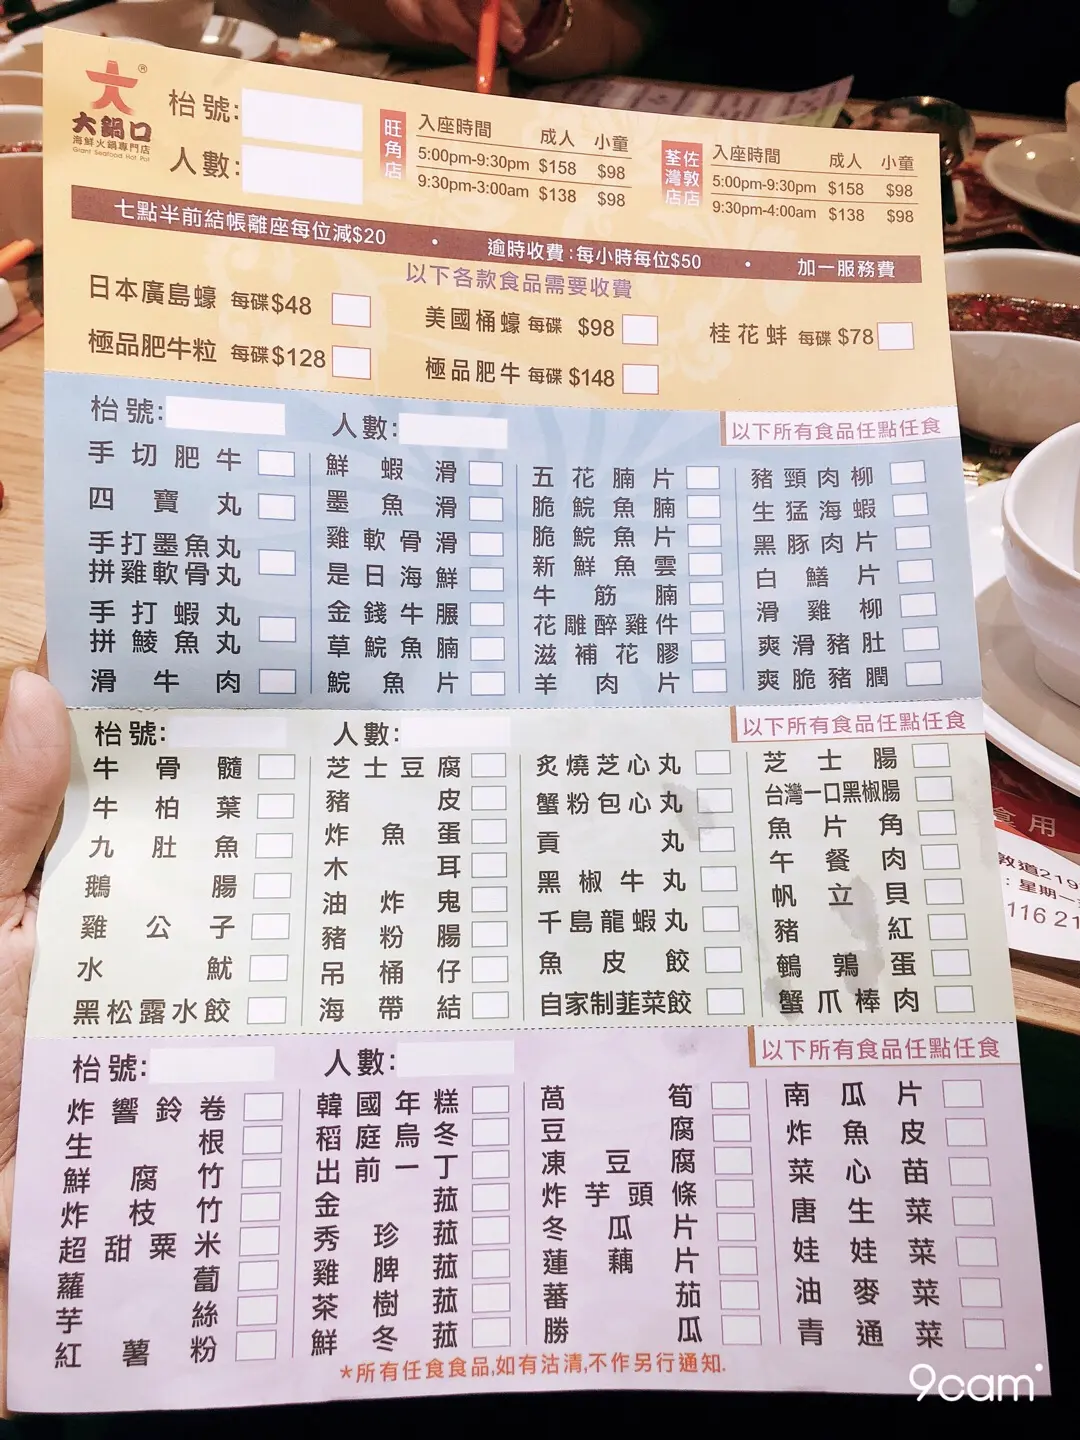 大®
大鍋口
海鮮火鍋專門店
Giant Seafood Hot Pot
枱號:
人數:
旺角店
入座時間 成人 小童
5:00pm-9:30pm $158 $98
9:30pm-3:00am $138 $98
荃灣店 佐敦店
入座時間 成人 小童
5:00pm-9:30pm $158 $98
9:30pm-4:00am $138 $98
七點半前結帳離座每位減$20 • 逾時收費:每小時每位$50 • 加一服務費
以下各款食品需要收費
日本廣島蠔 每碟$48
美國桶蠔 每碟 $98
桂花蚌 每碟 $78
極品肥牛粒 每碟$128
極品肥牛 每碟 $148
枱號: 人數: 以下所有食品任點任食
手切肥牛
四寶丸
手打墨魚丸
拼雞軟骨丸
手打蝦丸
拼鯪魚丸
滑牛肉
鮮蝦滑
墨魚滑
雞軟骨滑
是日海鮮
金錢牛𦟌
草鯇魚腩
鯇魚片
五花腩片
脆鯇魚腩
脆鯇魚片
新鮮魚雲
牛筋腩
花雕醉雞件
滋補花膠
羊肉片
豬頸肉柳
生猛海蝦
黑豚肉片
白鱔片
滑雞柳
爽滑豬肚
爽脆豬膶
枱號: 人數: 以下所有食品任點任食
牛骨髓
牛柏葉
九肚魚
鵝腸
雞公子
水魷
黑松露水餃
芝士豆腐
豬皮
炸魚蛋
木耳
油炸鬼
豬粉腸
吊桶仔
海帶結
炙燒芝心丸
蟹粉包心丸
貢丸
黑椒牛丸
千島龍蝦丸
魚皮餃
自家制韮菜餃
芝士腸
台灣一口黑椒腸
魚片角
午餐肉
帆立貝
豬紅
鵪鶉蛋
蟹爪棒肉
枱號: 人數: 以下所有食品任點任食
炸響鈴卷
生根
鮮腐竹
炸枝竹
超甜粟米
蘿蔔
芋絲
紅薯粉
韓國年糕
稻庭烏冬
出前一丁
金菰
秀珍菰
雞脾菰
茶樹菰
鮮冬菰
萵筍
豆腐
凍豆腐
炸芋頭條
冬瓜片
蓮藕片
蕃茄
勝瓜
南瓜片
炸魚皮
菜心苗
唐生菜
娃娃菜
油麥菜
青通菜
*所有任食食品,如有沽清,不作另行通知.
食用
敦道219
:星期一
116 21
9cam